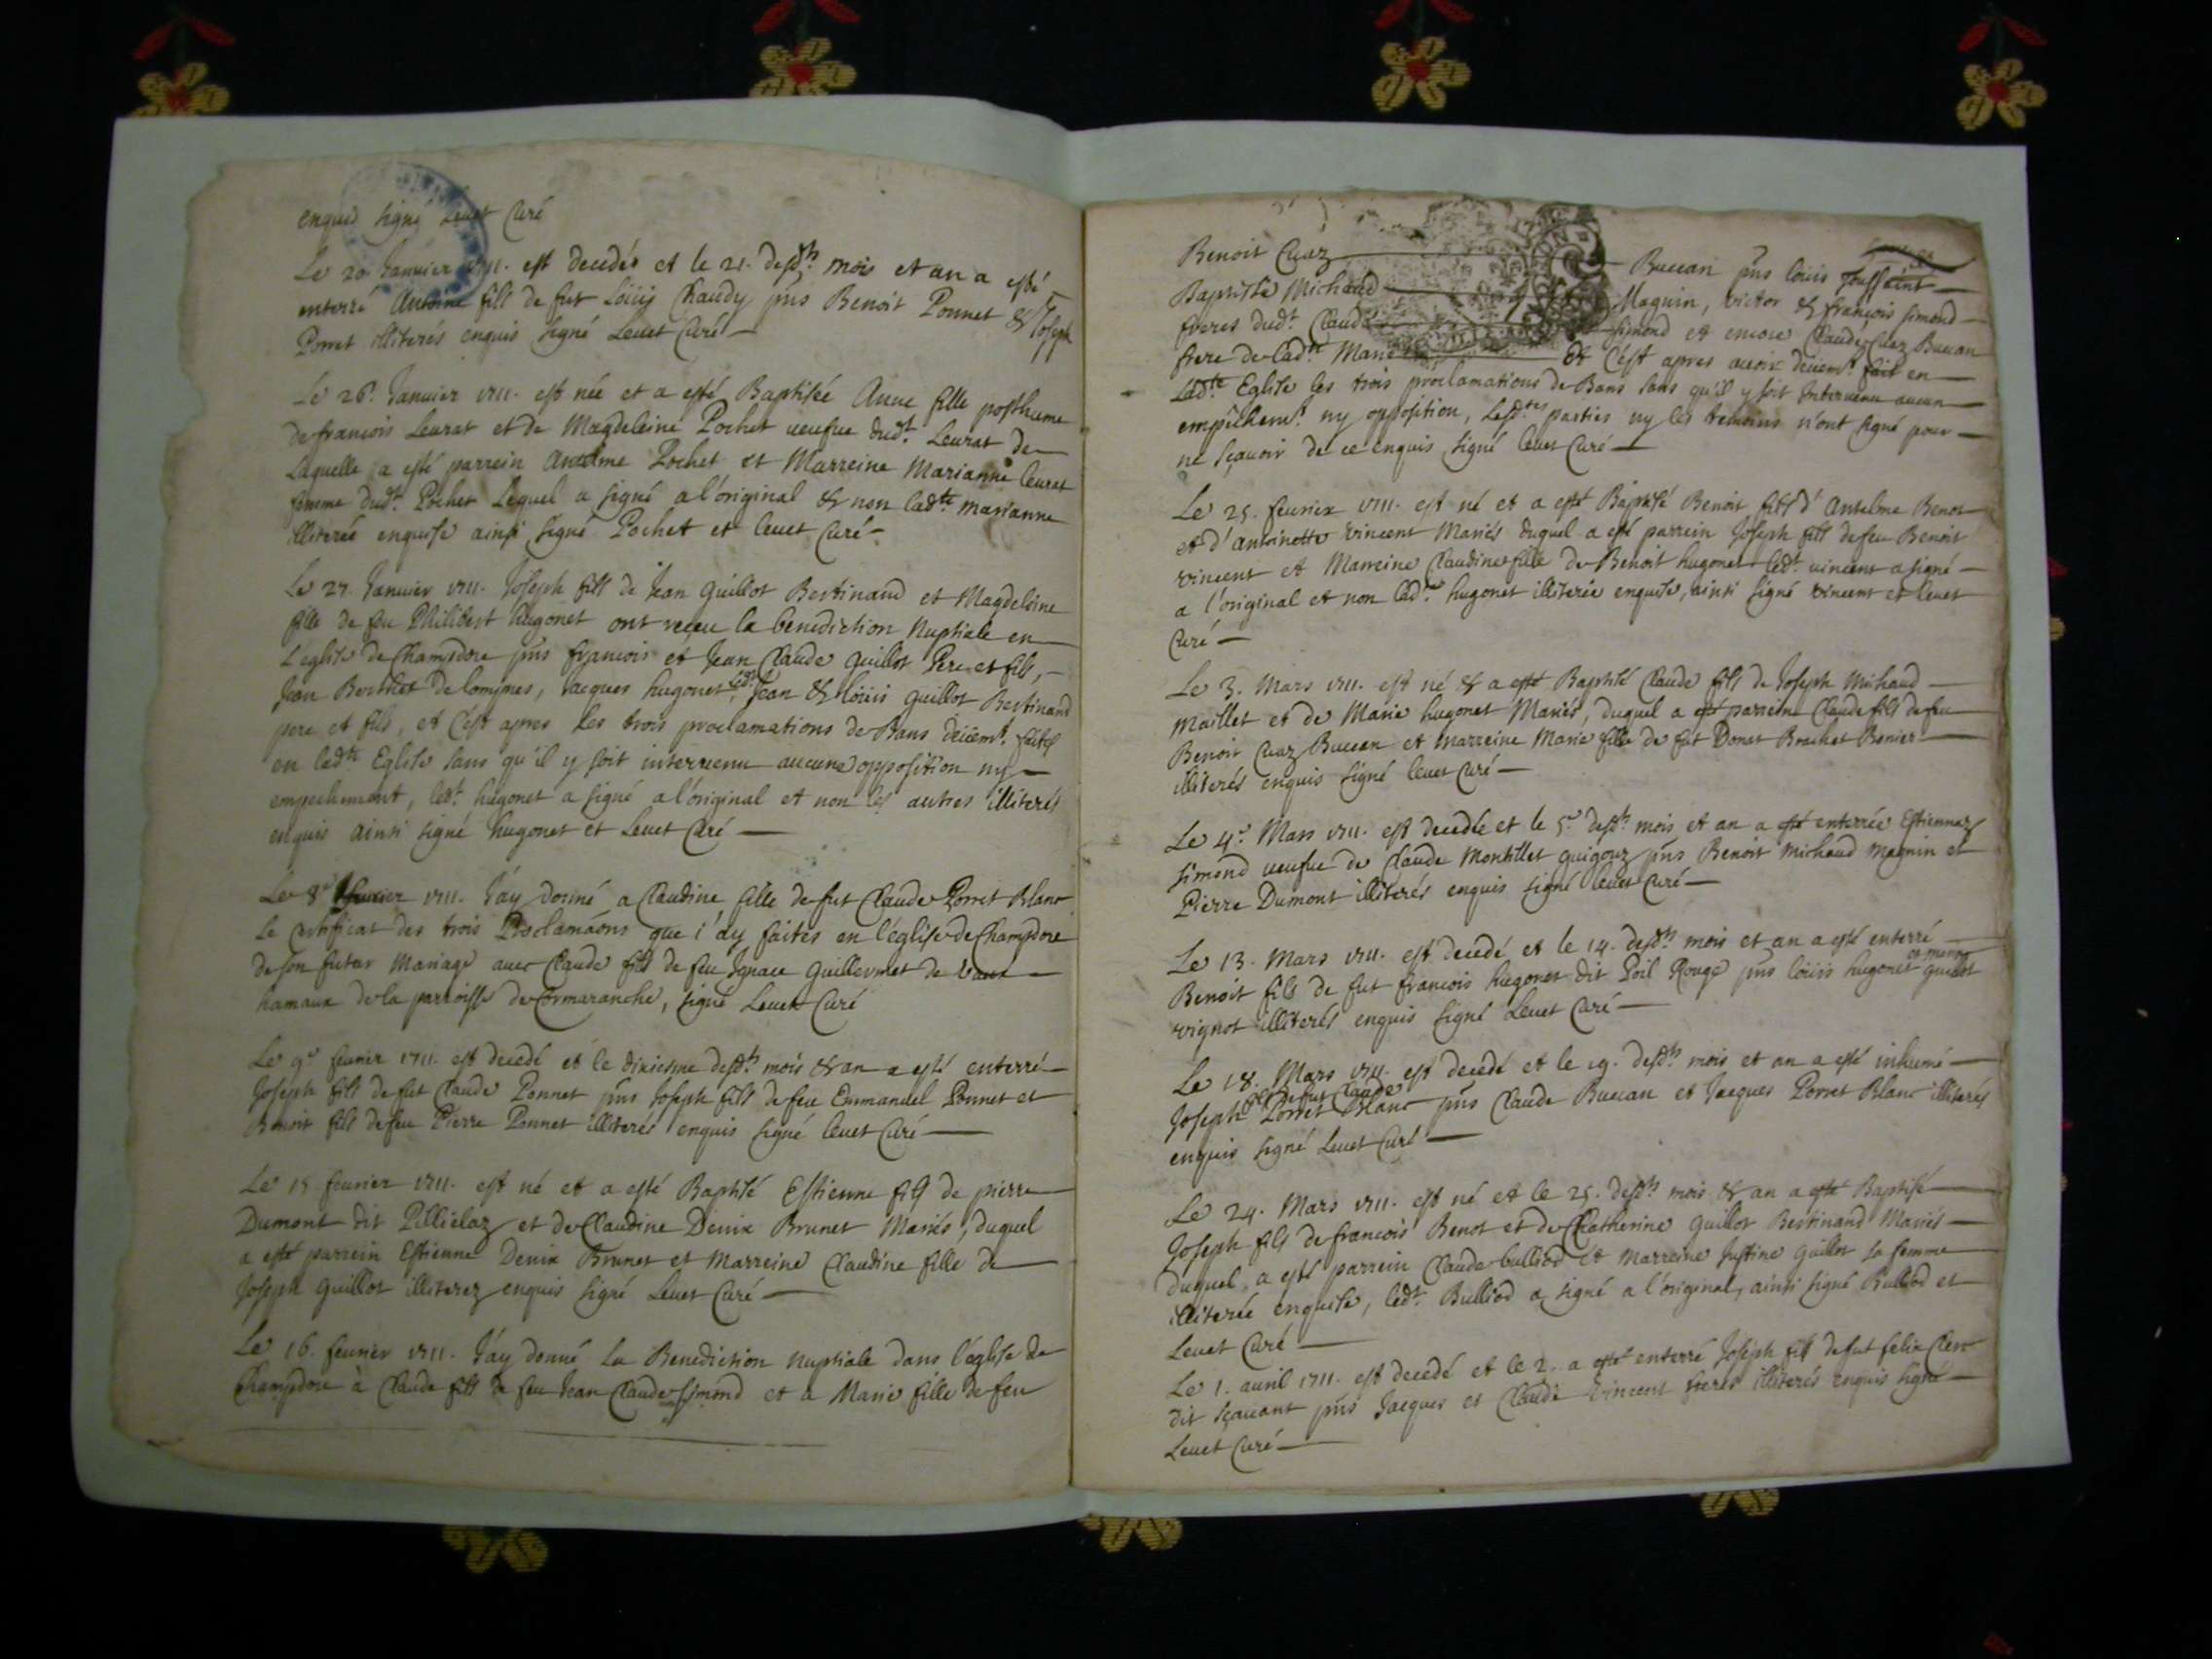 enquis signé Levet Curé
Le 20 Janvier 1711. est decedés et le 21. desd.ts mois et an a esté
enterré Antoine fils de fut Loüis Chaudy pñs Benoit Ponnet & Joseph
Porret illiterés enquis signé Levet Curé
Le 26.e Janvier 1711. est née et a esté Baptisée Anne fille posthume
de francois Levrat et de Magdeleine Pochet veufve dud.t Levrat de
Laquelle a esté parrein Antelme Pochet et Marreine Marianne levrat
femme dud.t Pochet Lequel a signé a l'original & non lad.te marianne
illiterée enquise ainsi signé Pochet et levet Curé
Le 27. Janvier 1711. Joseph fils de Jean Guillot Bertinand et Magdeleine
fille de feu Philibert hugonet ont reçeu la benediction Nuptiale en
L'eglise de Champdore pñs francois et Jean Claude Guillot Pere et fils,
Jean Berthet de lompnes, Jacques hugonet, led.t Jean & loüis guillot Bertinand
pere et fils, et c'est apres les trois proclamations de Bans deüem.t faites
en lad.te Eglise sans qu'il y soit intervenu aucune opposition ny
empechement, led.t hugonet a signé a l'original et non les autres illiterés
enquis ainsi signé hugonet et Levet Curé
Le 8.e fevrier 1711. J'ay donné a Claudine fille de fut Claude Porret Blanc
le Certificat des trois Proclamaõns que i'ay faites en l'église de Champdore
de son futur Mariage avec Claude fils de feu Ignace Guillermet de Vaux
hamaux de la parroisse de Cormaranche, signé Levet Curé
Le 9.e fevrier 1711. est decedé et le dixiesme desd.ts mois & an a esté enterré
Joseph fils de fut Claude Ponnet pñs Joseph fils de feu Emmanuel Ponnet et
Benoit fils de feu Pierre Ponnet illiterés enquis signé levet Curé
Le 15 fevrier 1711. est né et a esté Baptisé Estienne fils de pierre
Dumont dit Pillielaz et de Claudine Denix Brunet Mariés, duquel
a esté parrein Estienne Denix Brunet et Marreine Claudine fille de
Joseph Guillot illiterez enquis signé Levet Curé
Le 16. fevrier 1711. J'ay donné la Benediction nuptiale dans l'église de
Champdore à Claude fils de feu Jean Claude Simond et a Marie fille de feu
Benoit Cuaz Buccan pñs loüis Toussaint
Baptiste Michaud Maguin, victor & françois simond
freres dud.t Claude simond et encore Claude Cuaz Buccan
frere de lad.te Marie & c'est apres avoir deüem.t fait en
Lad.te Eglise les trois proclamations de Bans sans qu'il y soit Intervenu aucun
empêchem.t ny opposition, lesd.tes parties ny les temoins n'ont signé pour
ne sçavoir de ce enquis signé levet Curé
Le 25. fevrier 1711. est né et a esté Baptisé Benoit fils d'Antelme Benot
et d'Antoinette Vincent Mariés duquel a esté parrein Joseph fils de feu Benoit
vincent et Marreine Claudine fille de Benoit hugonet led.t vincent a signé
a l'original et non lad.te hugonet illiterée enquise, ainsi signé vincent et levet
Curé
Le 3. Mars 1711. est né & a esté Baptisé Claude fils de Joseph Michaud
Maillet et de Marie hugonet Mariés, duquel a esté parreine Claude fils de feu
Benoit Cuaz Buccan et Marreine Marie fille de fut Donat Brachet Benier
illiterés enquis signé levet Curé
Le 4.e Mars 1711. est decedée et le 5.e desd.ts mois et an a esté enterrée Estiennaz
simond veufve de Claude Montillet guigouz pñs Benoit Michaud Magnin et
Pierre Dumont illiterés enquis signé levet Curé
Le 13. Mars 1711. est decedé et le 14. desd.ts mois et an a esté enterré
Benoit fils de fut francois hugonet dit Poil Rouge pñs loüis hugonet guillot
vignot illiterés enquis signé Levet Curé
Le 18. Mars 1711. est decedé et le 19. desd.ts mois et an a esté inhumé
Joseph fils de fut Claude Porret Blanc pñs Claude Buccan et Jacques Porret Blanc illiterés
enquis signé Levet Curé
Le 24. Mars 1711. est né et le 25. desd.ts mois & an a esté Baptisé
Joseph fils de francois Benot et de Catherine Guillot Bertinand Mariés
Duquel a esté parrein Claude bulliod et Marreine Justine Guillot sa femme
illiterée enquise, led.t Bulliod a signé a l'original, ainsi signé Bulliod et
Levet Curé
Le 1. avril 1711. est decedé et le 2. a esté enterré Joseph fils de fut felix Clerc
dit sçavant pñs Jacques et Claude vincent freres illiterés enquis signé
Levet Curé